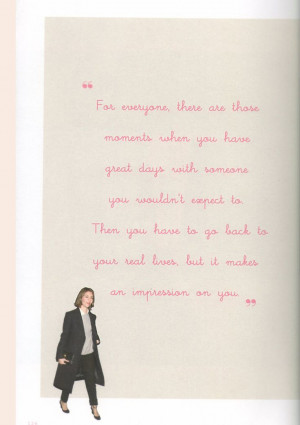 “
For everyone, there are those
moments when you have
great days with someone
you wouldn't expect to.
Then you have to go back to
your real lives, but it makes
an impression on you.
”